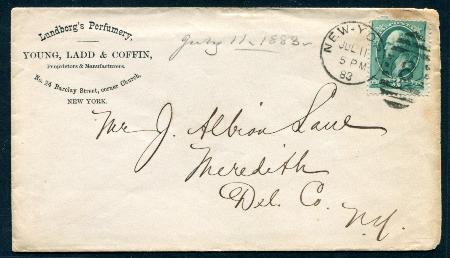 Lundborg's Perfumery.
YOUNG, LADD & COFFIN,
Proprietors & Manufacturers.
No. 24 Barclay Street, corner Church,
NEW YORK.
July 11, 1883
NEW-YO
JUL 11
5 PM
83
Mr J. Albion Lane
Meredith
Del. Co.
N.Y.